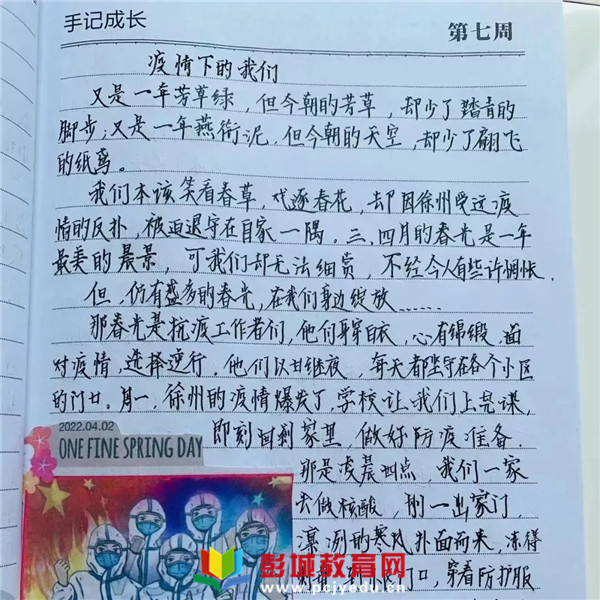 手记成长
第七周
疫情下的我们
又是一年芳草绿，但今朝的芳草，却少了踏青的
脚步；又是一年燕衔泥，但今朝的天空，却少了翩飞
的纸鸢。
我们本该笑看春草，戏逐春花，却因徐州受这疫
情的反扑，被迫退守在自家一隅。三、四月的春光是一年
最美的晨景，可我们却无法细赏，不经令人有些许惆怅。
但，仍有盛多的春光，在我们身边绽放……
那春光是抗疫工作者们，他们身穿白衣，心有锦缎，面
对疫情，选择逆行，他们夜以继夜，每天都坚守在各个小区
的门口。周一，徐州的疫情爆发了，学校让我们上完课，
即刻回到家里，做好防疫准备。
2022.04.02
ONE FINE SPRING DAY
那是凌晨四点，我们一家
去做核酸，刚一出家门，
凛冽的寒风扑面而来，冻得
门口，穿着防护服
彭城教育网
www.pcjyedu.cn